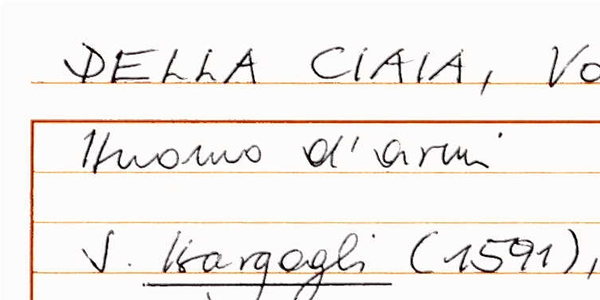 DELLA CIAIA, Vo
Huomo d'armi
V. Bargagli (1591),